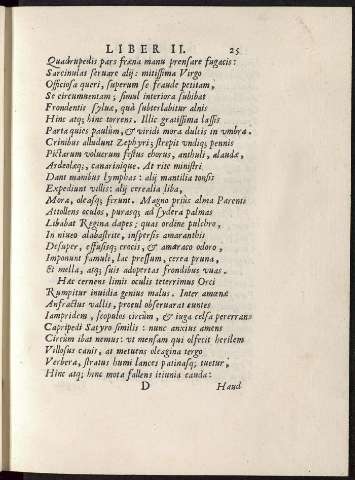 LIBER II. 25
Quadrupedis pars fræna manu prensare fugacis:
Sarcinulas seruare alij: mitissima Virgo
Officiosa queri, superum se fraude petitam,
Se circumuentam; simul interiora subibat
Frondentis syluæ, quà subterlabitur alnis
Hinc atq; hinc torrens. Illic gratissima lassis
Parta quies paulùm, & viridi mora dulcis in vmbra.
Crinibus alludunt Zephyri; strepit vndiq; pennis
Pictarum volucrum festus chorus, anthuli, alaudæ,
Ardeolæq;, canariniquè. At rite ministri
Dant manibus lymphas: alij mantilia tonsis
Expediunt villis: alij cerealia liba,
Mora, oleasq; ferunt. Magno priùs alma Parenti
Attollens oculos, purasq; ad sydera palmas
Libabat Regina dapes; quas ordine pulchro,
In niueo alabastrite, inspersis amaranthis
Desuper, effusisq; crocis, & amaraco odoro,
Imponunt famuli, lac pressum, cerea pruna,
Et mella, atq; suis adopertas frondibus vuas.
Hæc cernens limis oculis teterrimus Orci
Rumpitur inuidia genius malus. Inter amœnæ
Anfractus vallis, procul obseruarat euntes
Iampridem, scopulos circùm, & iuga celsa pererrans
Capripedi Satyro similis: nunc anxius amens
Circùm ibat nemus: vt mensam qui olfecit herilem
Villosus canis, at metuens oleagina tergo
Verbera, stratus humi lances patinasq; tuetur,
Hinc atq; hinc mota fallens ieiunia cauda:
D Haud